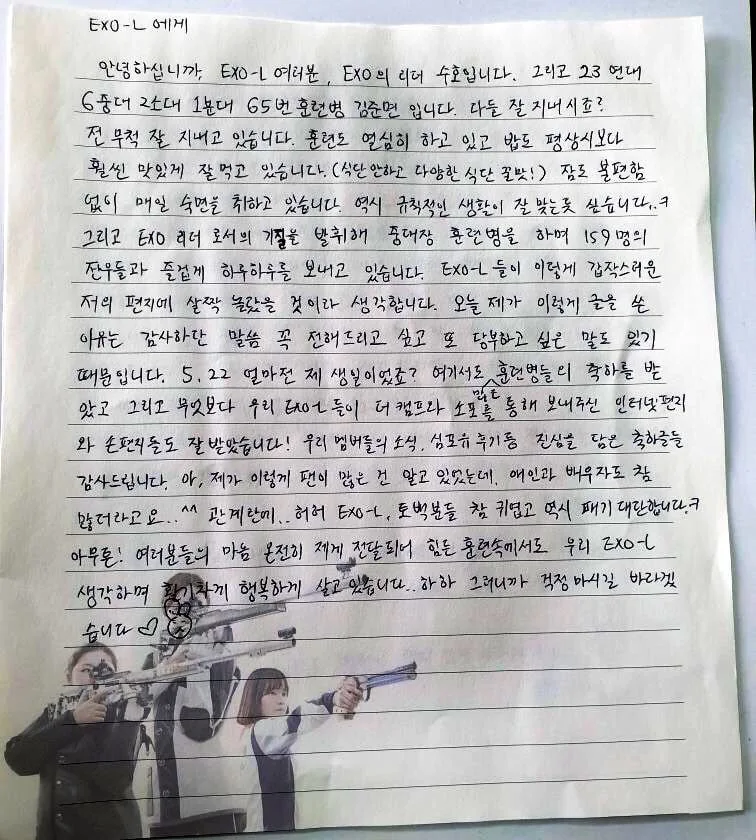 EXO-L 에게
안녕하십니까, EXO-L 여러분, EXO의 리더 수호입니다. 그리고 23 연대
6중대 2소대 1분대 65번 훈련병 김준면 입니다. 다들 잘 지내시죠?
전 무척 잘 지내고 있습니다. 훈련도 열심히 하고 있고 밥도 평상시보다
훨씬 맛있게 잘먹고 있습니다. (식단안하고 다양한 식단 꿀맛!) 잠도 불편함
없이 매일 숙면을 취하고 있습니다. 역시 규칙적인 생활이 잘 맞는듯 싶습니다..ㅋ
그리고 EXO 리더 로서의 기질을 발휘해 중대장 훈련병을 하며 159명의
전우들과 즐겁게 하루하루를 보내고 있습니다. EXO-L 들이 이렇게 갑작스러운
저의 편지에 살짝 놀랐을 것이라 생각합니다. 오늘 제가 이렇게 글을 쓴
이유는 감사하단 말씀 꼭 전해드리고 싶고 또 당부하고 싶은 말도 있기
때문입니다. 5.22 얼마전 제 생일이었죠? 여기서도 많은 훈련병들의 축하를 받
았고 그리고 무엇보다 우리 EXO-L들이 더캠프라 소포를 통해 보내주신 인터넷편지
와 손편지들도 잘 받았습니다! 우리 멤버들의 소식, 심포유 후기등 진심을 담은 축하글들
감사드립니다. 아, 제가 이렇게 팬이 많은 건 알고 있었는데, 애인과 배우자도 참
많더라고요..^^ 관계란에.. 허허 EXO-L, 토벅분들 참 귀엽고 역시 패기 대단합니다.ㅋ
아무튼! 여러분들의 마음 온전히 제게 전달되어 힘든 훈련속에서도 우리 EXO-L
생각하며 활기차게 행복하게 살고 있습니다.. 하하 그러니까 걱정마시길 바라겠
습니다 ♡